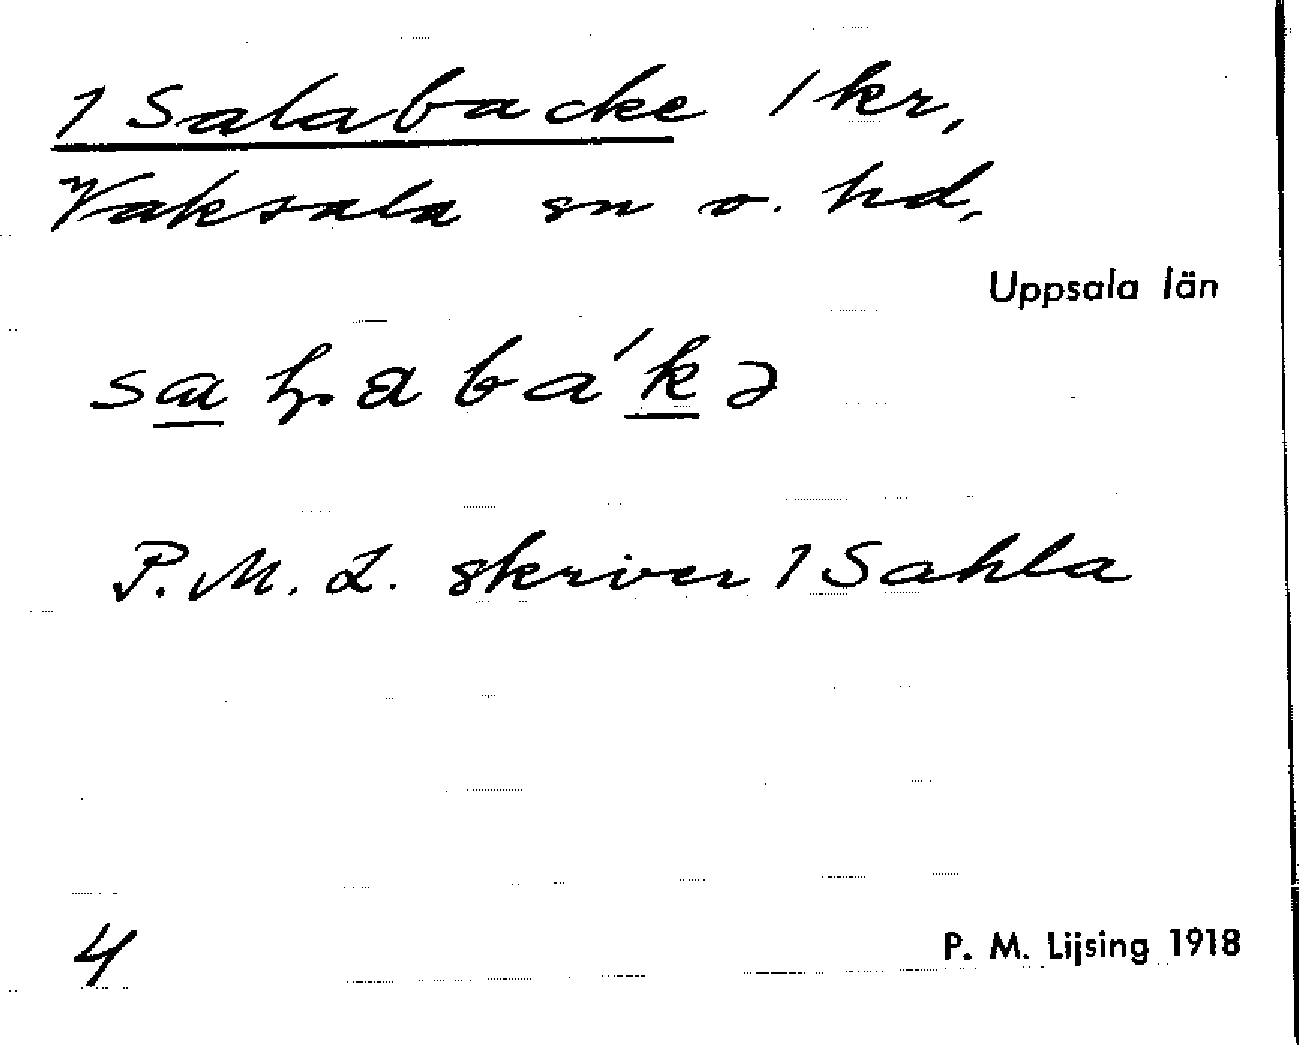 1 Salabacke 1 kr,
Vaksala sn o. hd,
Uppsala län
P. M. L. skriver 1 Sahla
4
P. M. Lijsing 1918